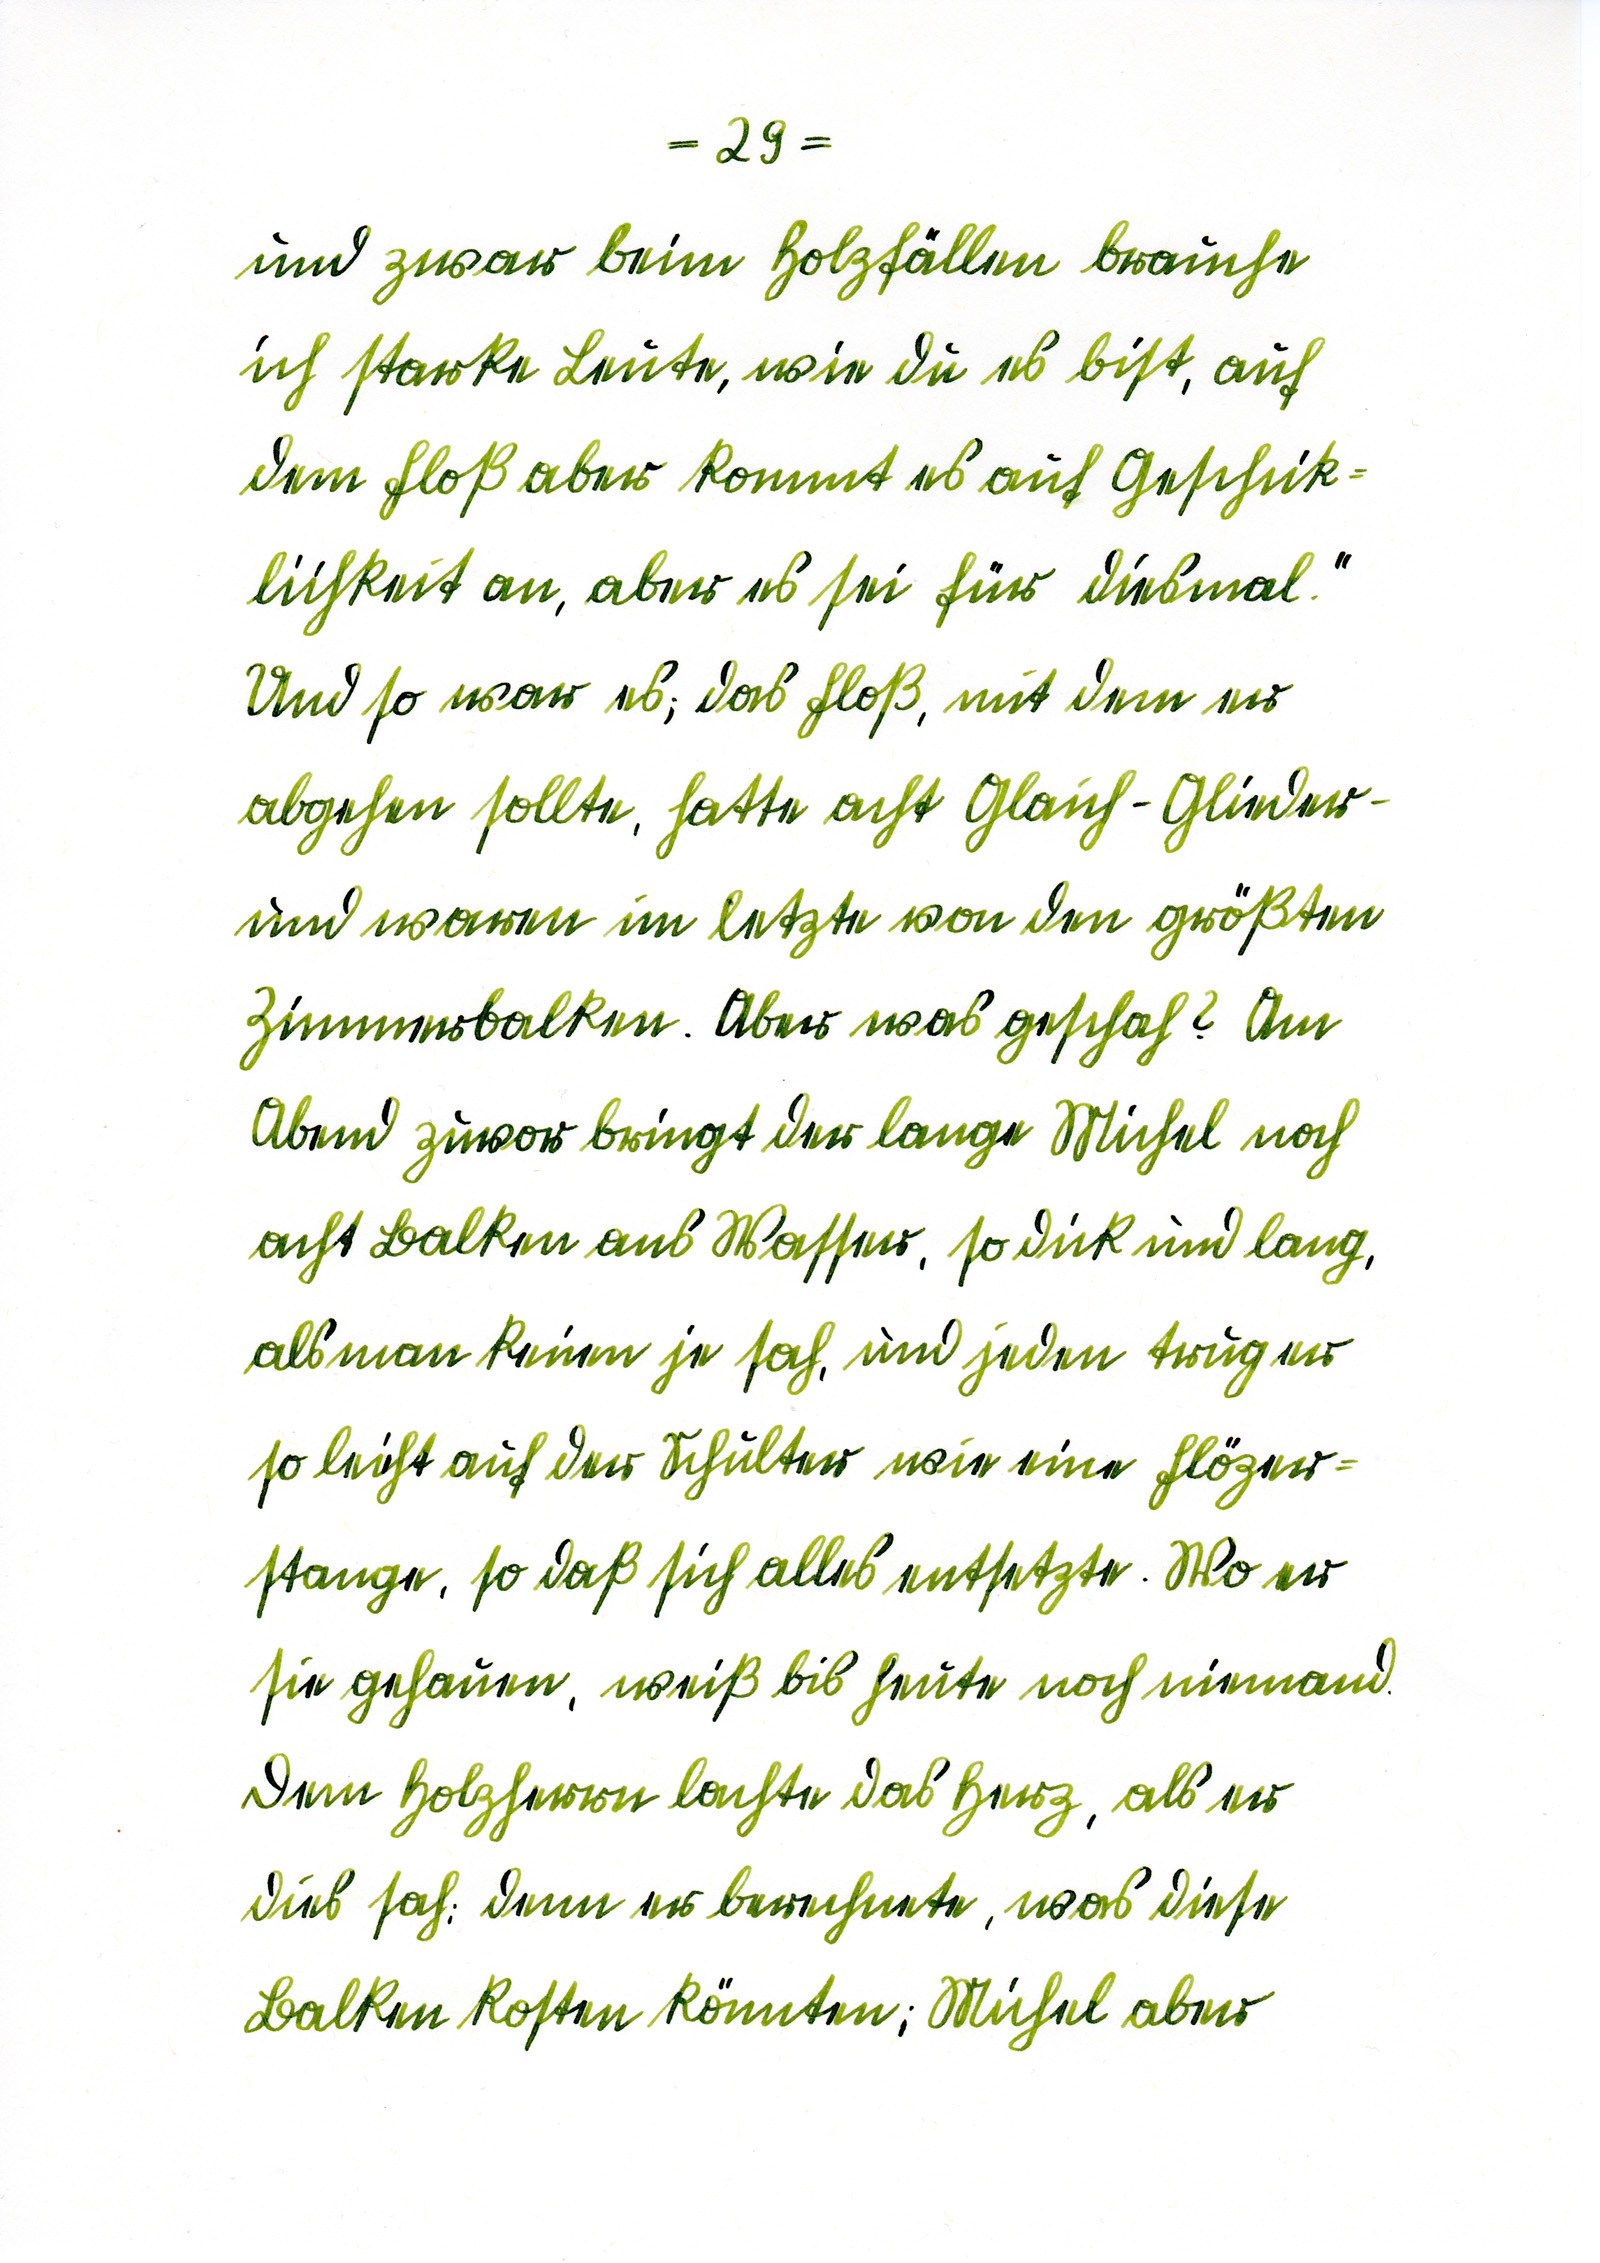 = 29 =
und zwar beim Holzfällen brauche
ich starke Leute, wie du es bist, auf
dem Floß aber kommt es auf Geschik=
lichkeit an, aber es sei für diesmal."
Und so war es; das Floß, mit dem er
abgehen sollte, hatte acht Glaich-Glieder-
und waren im letzte von den größten
Zimmerbalken. Aber was geschah? Am
Abend zuvor bringt der lange Michel noch
acht Balken ans Wasser, so dick und lang,
als man keinen je sah, und jeden trug er
so leicht auf der Schulter wie eine Flözer=
stange, so daß sich alles entsetzte. Wo er
sie gehauen, weiß bis heute noch niemand.
Dem Holzherrn lachte das Herz, als er
dies sah; denn er berechnete, was diese
Balken kosten könnten; Michel aber